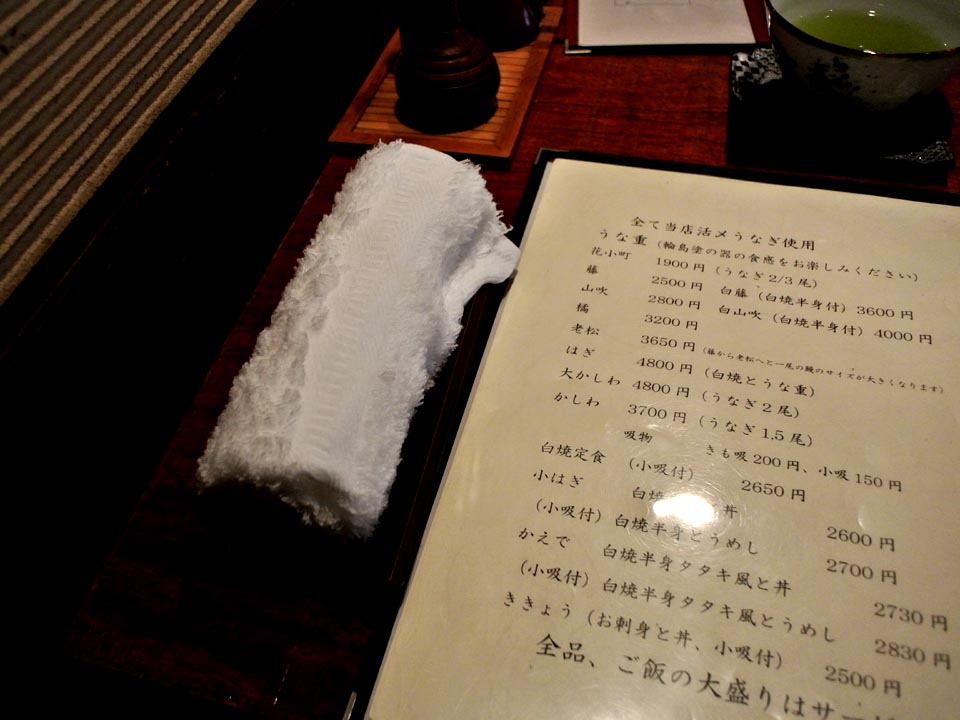 全て当店活〆うなぎ使用
うな重（輪島塗の器の食感をお楽しみください）
花小町 1900円（うなぎ2/3尾）
藤 2500円 白藤（白焼半身付）3600円
山吹 2800円 白山吹（白焼半身付）4000円
橘 3200円
老松 3650円（藤から老松へと一尾の鰻のサイズが大きくなります）
はぎ 4800円（白焼とうな重）
大かしわ 4800円（うなぎ2尾）
かしわ 3700円（うなぎ1,5尾）
吸物 きも吸200円、小吸150円
白焼定食（小吸付） 2650円
小はぎ 白焼 丼 2600円
（小吸付）白焼半身とうめし 2700円
かえで 白焼半身タタキ風と丼 2730円
（小吸付）白焼半身タタキ風とうめし 2830円
ききょう（お刺身と丼、小吸付） 2500円
全品、ご飯の大盛りはサー